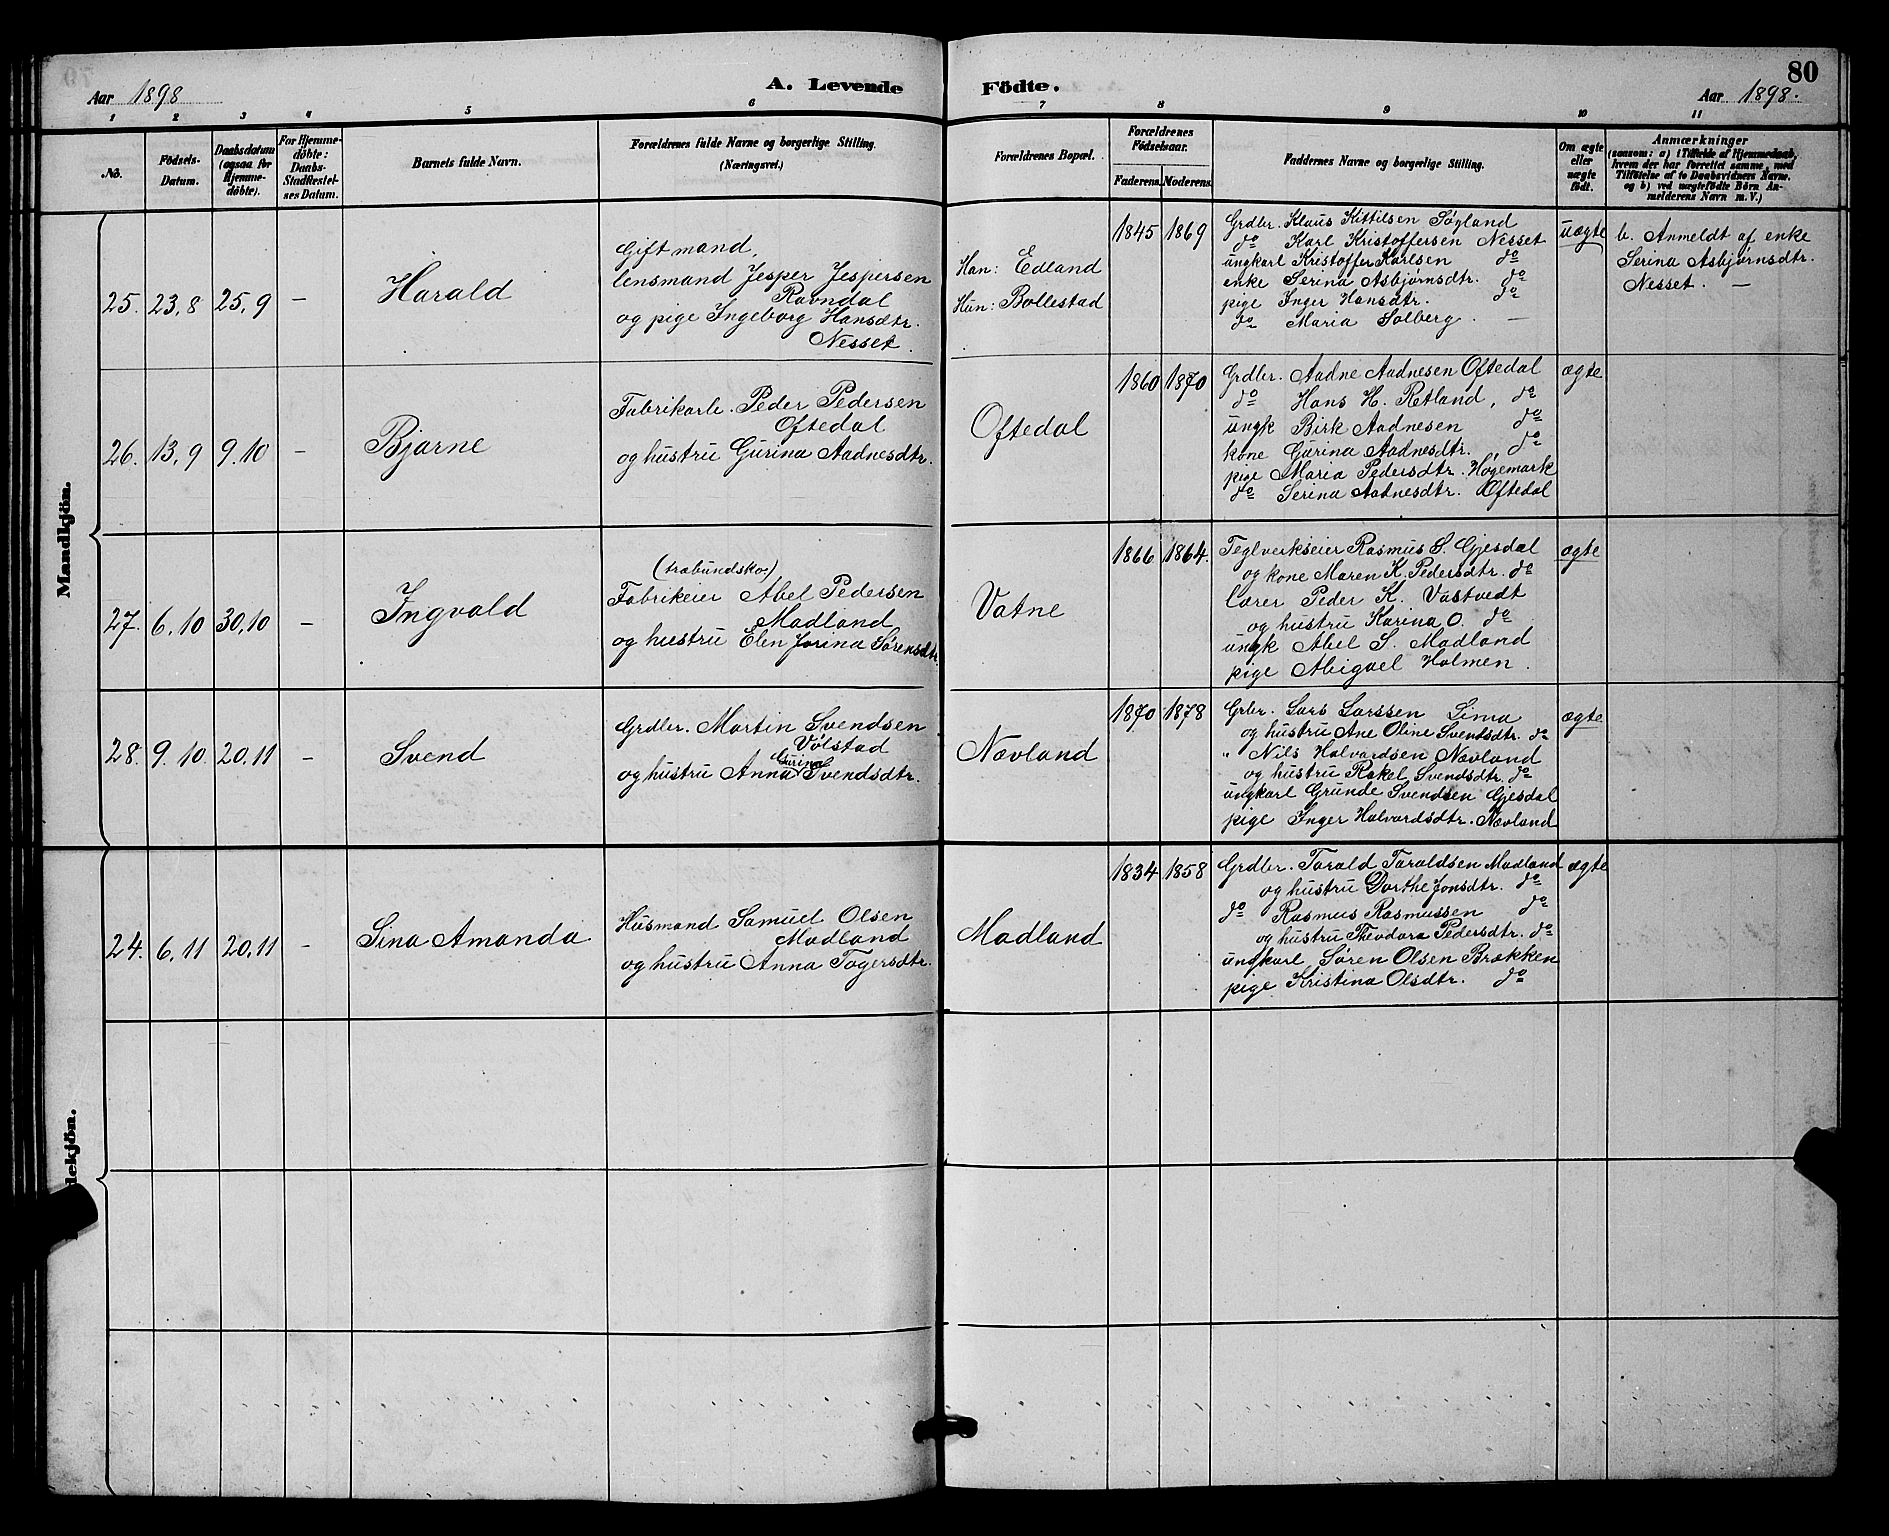 80
Aar 1898
A. Levende Födte.
Aar 1898.
1 2 3 4 5 6 7 8 9 10 11
No.
Födsels-
Datum.
Daabsdatum
(ogsaa for
Hjemme-
döbte).
For Hjemme-
döbte:
Daabs-
Stadfæstel-
ses Datum.
Barnets fulde Navn.
Forældrenes fulde Navne og borgerlige Stilling.
(Næringsvei.)
Forældrenes Bopæl.
Forældrenes
Födselsaar.
Faderens. Moderens.
Faddernes Navne og borgerlige Stilling.
Om ægte
eller
uægte
født.
Anmærkninger
(saasom: a) i Tilfælde af Hjemmedaab,
hvem der har forrettet samme, med
Tilföielse af to Daabsvidners Navne,
og b) ved uægtefödte Börn An-
melderens Navn m. V.)
Mandkjön.
25. 23,8 25,9 –
Harald
Gift mand,
lensmand Jesper Jespersen
Ravndal
og pige Ingeborg Hansdtr.
Nesset.
Han: Edland
Hun: Bollestad
1845 1869
Grdbr. Klaus Kittilsen Søyland
do Karl Kristoffersen Nesset
ungkarl Kristoffer Karlsen do
enke Serina Asbjørnsdtr. do
pige Inger Hansdtr. do
do Maria Solberg. –
uægte
b. Anmeldt af enke
Serina Asbjørnsdtr.
Nesset. –
26. 13,9 9.10 –
Bjarne
Fabrikarb. Peder Pedersen
Oftedal
og hustru Gurina Aadnesdtr.
Oftedal
1860 1870
Grdbr. Aadne Aadnesen Oftedal
do Hans H. Retland, do
ungk Birk Aadnesen do
kone Gurina Aadnesdtr. do
pige Maria Pedersdtr. Høgemark
do Serina Aadnesdtr. Oftedal
ægte
27. 6,10 30,10 –
Ingvald
(træbundsko)
Fabrikeier Abel Pedersen
Madland
og hustru Elen Jorina Sørensdtr.
Vatne
1866 1864.
Teglverkseier Rasmus S. Gjesdal
og kone Maren K. Pedersdtr. do
lærer Peder K. Vastvedt
og hustru Karina O. do
ungk Abel S. Madland
pige Abigael Holmen.
ægte
28. 9.10. 20.11 –
Svend
Grdbr. Martin Svendsen
Vølstad
Gurina
og hustru Anna Svendsdtr.
Nævland
1870 1878
Grbr. Lars Larssen Lima
og hustru Ane Oline Svendsdtr. do
" Nils Halvardsen Nævland
og hustru Rakel Svendsdtr. do
ungkarl Grunde Svendsen Gjesdal
pige Inger Halvardsdtr. Nævland
ægte
24. 6,11 20,11 –
Sina Amanda
Husmand Samuel Olsen
Madland
og hustru Anna Togersdtr.
Madland
1834 1858
Grdbr. Tarald Taraldsen Madland
og hustru Dorthe Jonsdtr. do
do Rasmus Rasmussen do
og hustru Theodora Pedersdtr. do
ungkarl Søren Olsen Brækken
pige Kristina Olsdtr. do
ægte
dekjön.